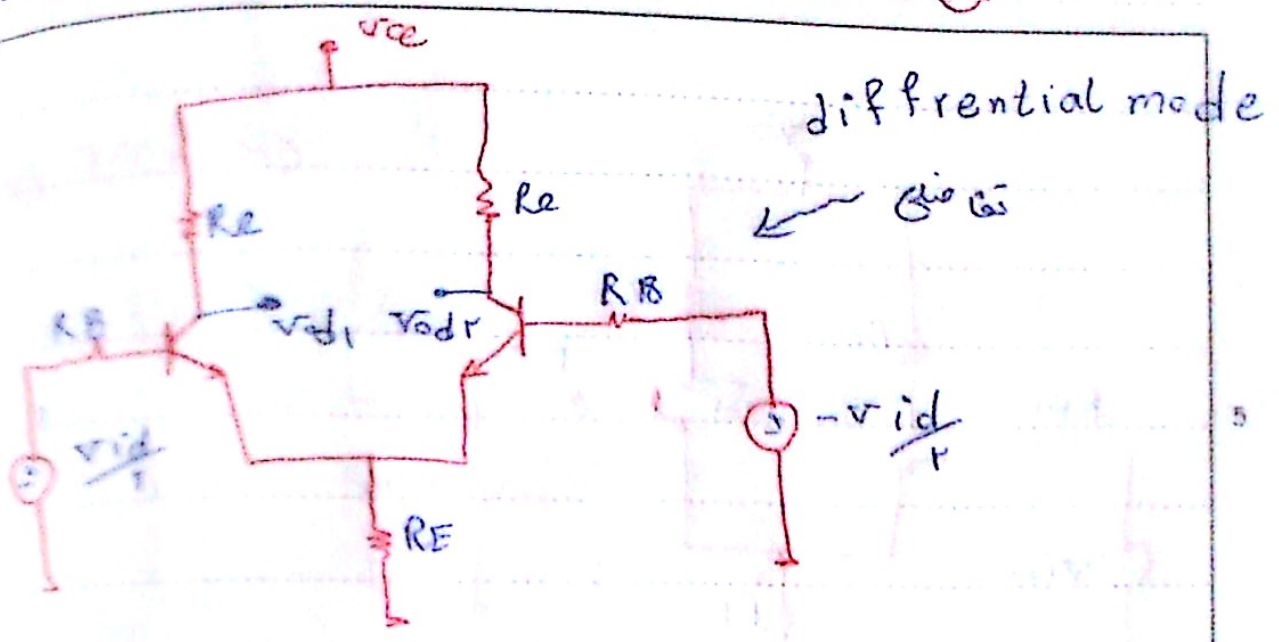 vcc
diffrential mode
Rc
Rc
RB
RB
vod۱
vod۲
vid/۲
-vid/۲
RE